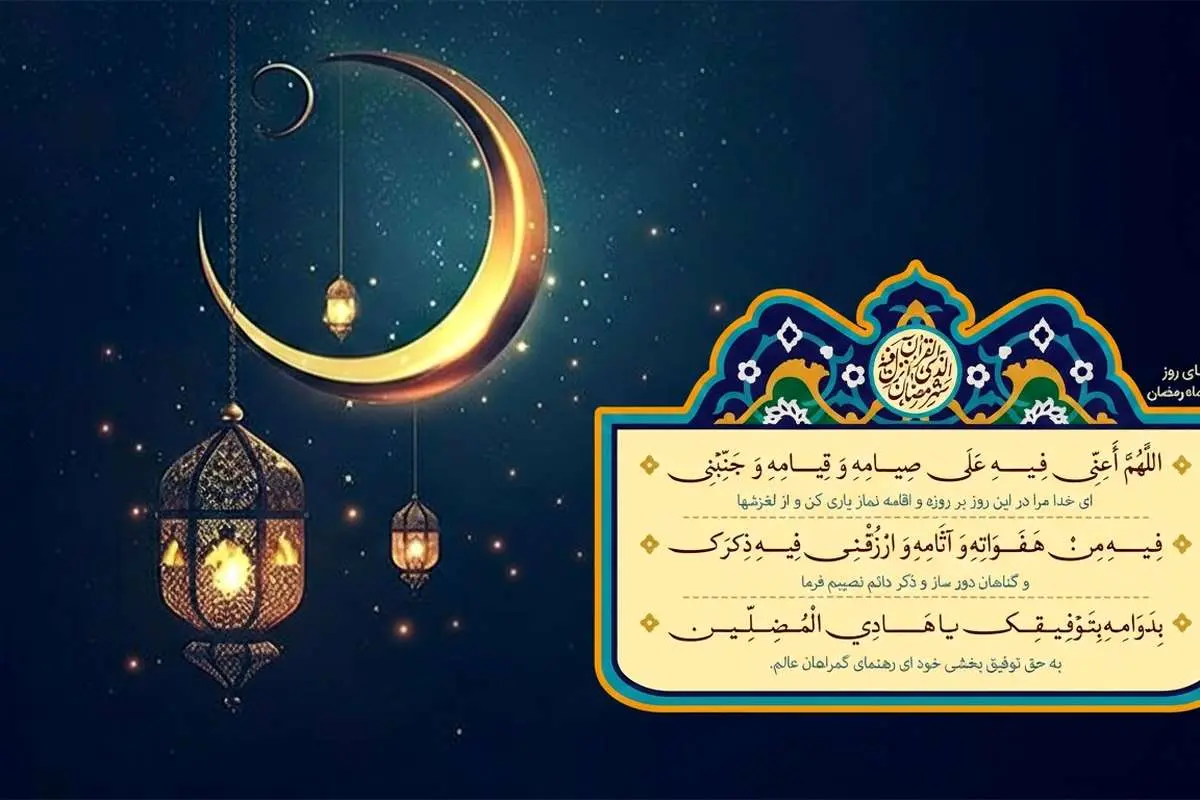 شهر رمضان الذی انزل فیه القرآن
ای روز
ماه رمضان
اللَّهُمَّ أَعِنِّی فِیهِ عَلَی صِیَامِهِ وَ قِیَامِهِ وَ جَنِّبْنِی
ای خدا مرا در این روز بر روزه و اقامه نماز یاری کن و از لغزشها
فِیهِ مِنْ هَفَوَاتِهِ وَ آثَامِهِ وَ ارْزُقْنِی فِیهِ ذِکرَک
و گناهان دور ساز و ذکر دائم نصیبم فرما
بِدَوَامِهِ بِتَوْفِیقِک یا هَادِي الْمُضِلِّینَ
به حق توفیق بخشی خود ای رهنمای گمراهان عالم.